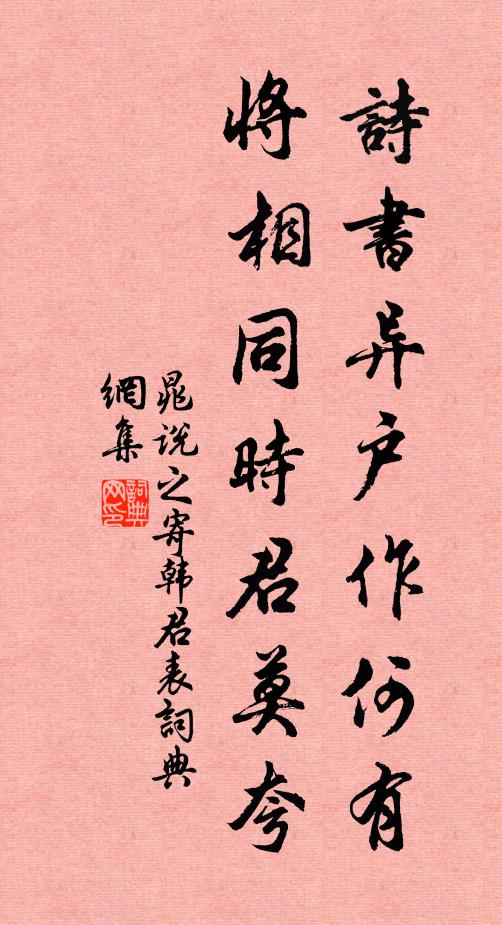 詩書异户作何有
將相同時君莫夸
晁説之寄韩君表詞典
網集
詞典网印